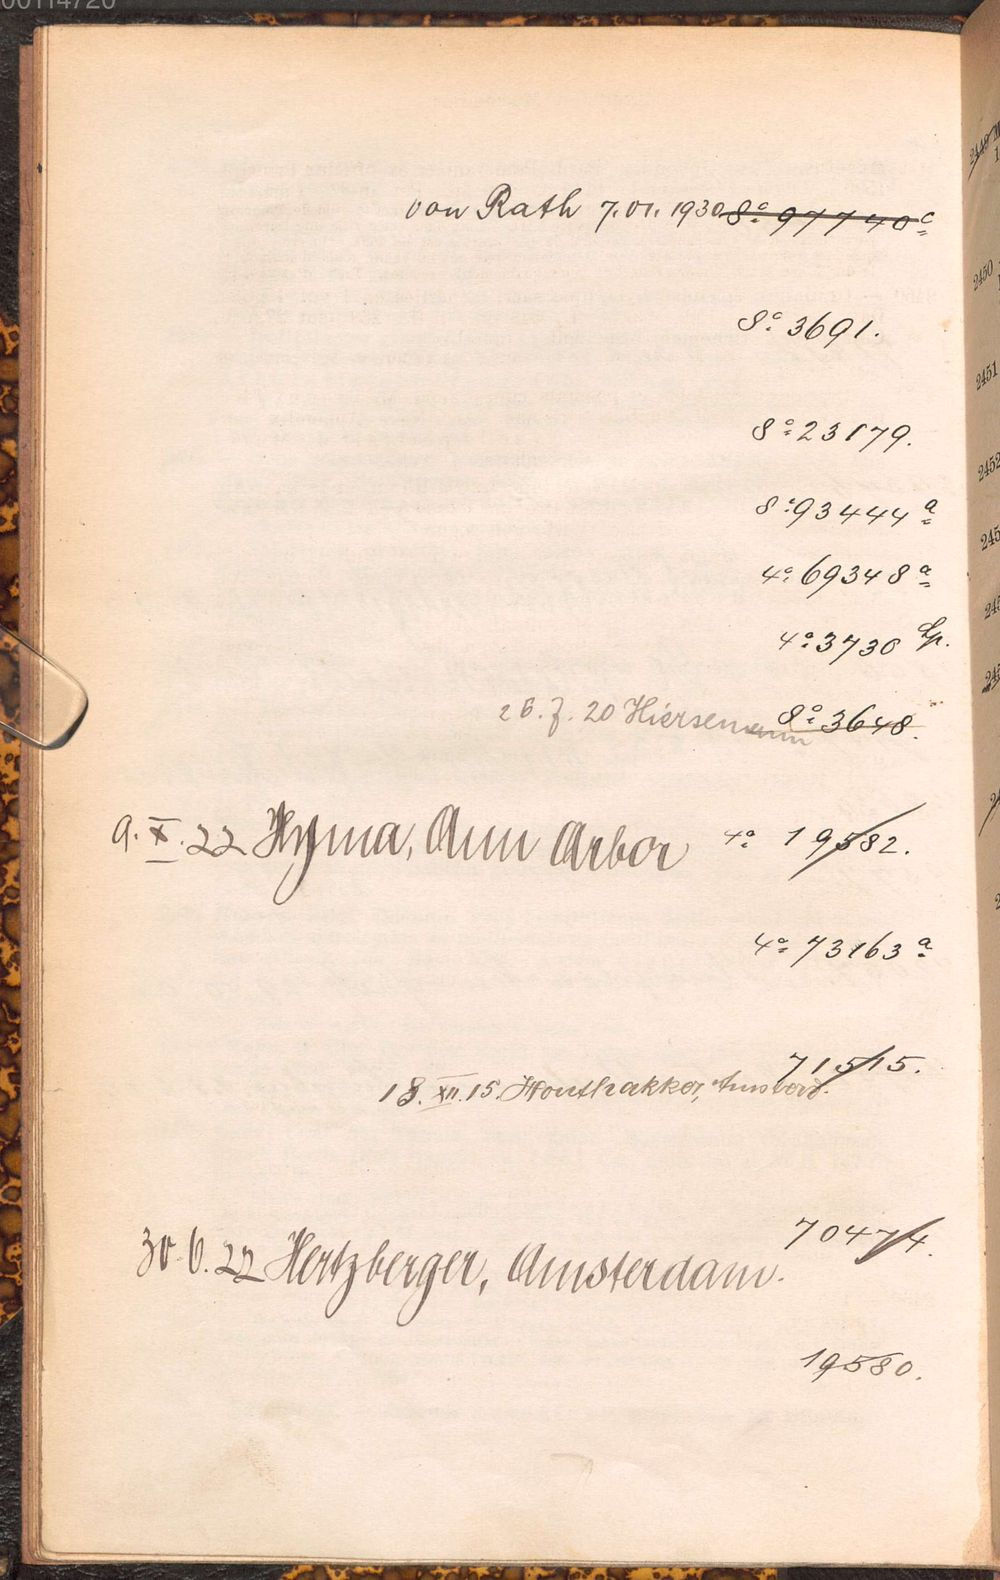 00114720
von Rath 7.VI.1930 8° 97740 c
8° 3691.
8° 23179.
8° 93444 a
4° 69348 a
4° 3730
20 Hiersemann 8° 3648.
9. X. 22 Hyma, Ann Arbor 4° 19582.
4° 73163 a
71515.
18. XII. 15. Houthakker, Amsterd.
70474.
30. 6. 22 Hertzberger, Amsterdam.
19580.
2449
2450
2451
2452